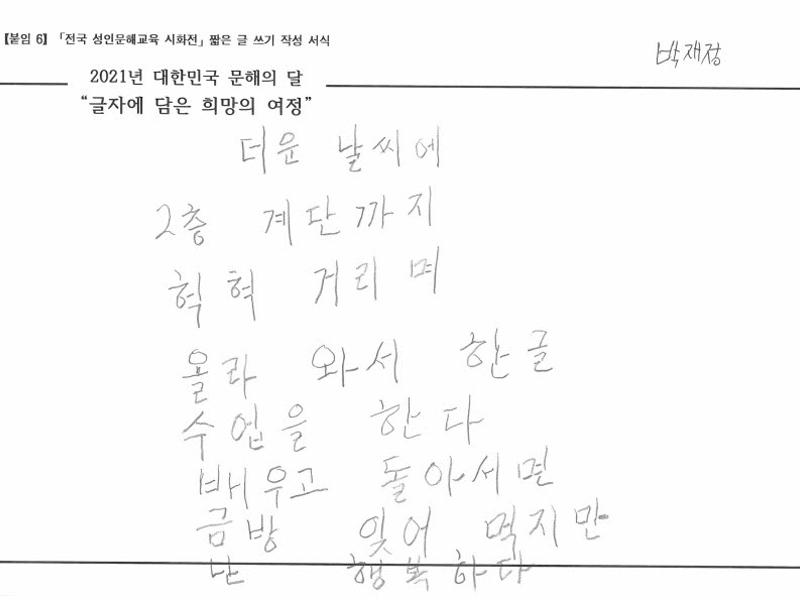 【붙임 6】 「전국 성인문해교육 시화전」 짧은 글 쓰기 작성 서식
박재정
2021년 대한민국 문해의 달
“글자에 담은 희망의 여정”
더운 날씨에
2층 계단까지
헉헉 거리며
올라 와서 한글
수업을 한다
배우고 돌아서면
금방 잊어 먹지만
난 행복하다